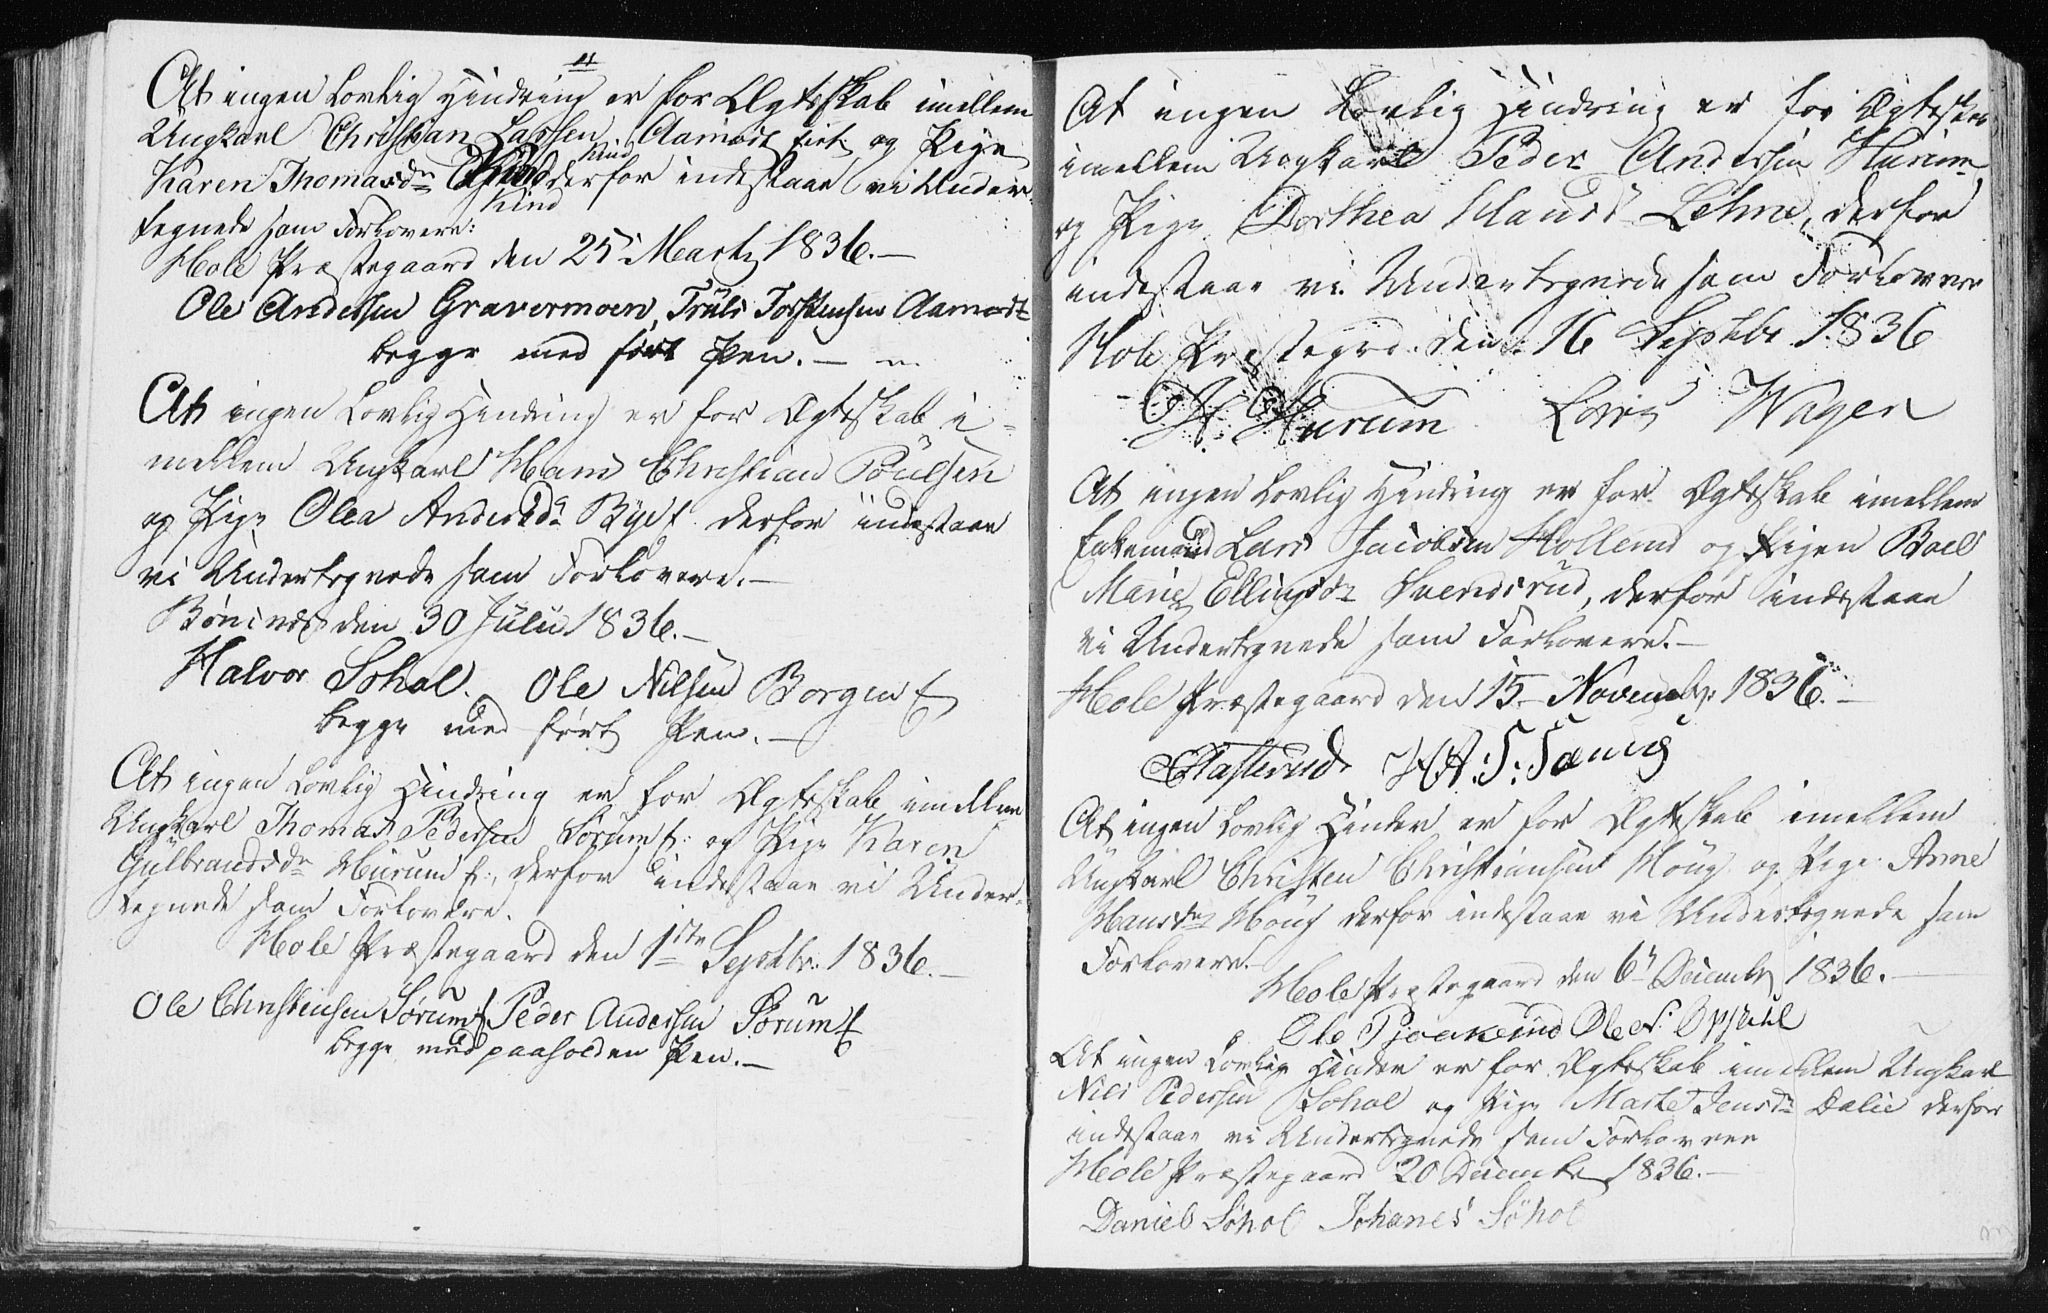 At ingen Lovlig Hindring er for Ægteskab imellem
Ungkarl Christian Larsen Aamodt og Pige
Kind
Karen Thomasdr derfor indestaae vi Under-
Kind
tegnede som Forlovere:
Hole Præstegaard den 25 Marts 1836.—
Ole Andersen Gravermoen, Truls Torstensen Aamodt
begge med ført Pen.—
At ingen Lovlig Hindring er for Ægteskab i-
mellem Ungkarl Hans Christian Poulsen
og Pige Olea Andersdr Bye derfor indestaae
vi Undertegnede som Forlovere.—
Bønsnes den 30 Julii 1836.—
Halvor Sohol. Ole Nilsen Borgen
begge med ført Pen.—
At ingen Lovlig Hindring er for Ægteskab imellem
Ungkarl Thomas Pedersen Sørum og Pige Karen
Gulbrandsdr Hurum derfor indestaae vi Under-
tegnede som Forlovere.
Hole Præstegaard den 1ste Septbr. 1836.—
Ole Christensen Sørum Peder Andersen Sørum
begge med paaholden Pen.—
At ingen Lovlig Hindring er for Ægteskab
imellem Ungkarl Peder Andersen Hurum
og Pige Dorthea Klausd Lehne, derfor
indestaae vi Undertegnede som Forlovere
Hole Præstegrd. den 16 Septbr 1836
H. Hurum Wagen
At ingen Lovlig Hindring er for Ægteskab imellem
Enkemand Lars Jacobsen og Pigen Boel
Marie Ellingsdr Svendsrud, derfor indestaae
vi Undertegnede som Forlovere.—
Hole Præstegaard den 15 Novembr: 1836.—
At ingen Lovlig Hinder er for Ægteskab imellem
Ungkarl Christen Christiansen og Pige Anne
Hansdr derfor indestaae vi Undertegnede som
Forlovere.
Hole Præstegaard den 6 Decembr 1836.—
Ole Ole
At ingen Lovlig Hinder er for Ægteskab imellem Ungkarl
Niels Pedersen Sohol og Pige Marte Jensdr derfor
indestaae vi Undertegnede som Forlovere
Hole Præstegaard 20 Decembr 1836.—
Daniel Søhol Johanes Søhol